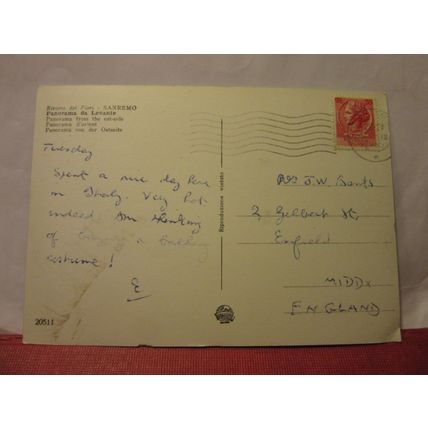 Riviera dei Fiori - SANREMO
Panorama da Levante
Panorama from the est-side
Panorama d'orient
Panorama von der Ostseite
Tuesday
Spent a nice day here
in Italy. Very hot
indeed. Am thinking
of a bathing
costume!
E
20511
Riproduzione vietata
J.W. Bants
2, Gilbert St,
Enfield
MIDDX
ENGLAND